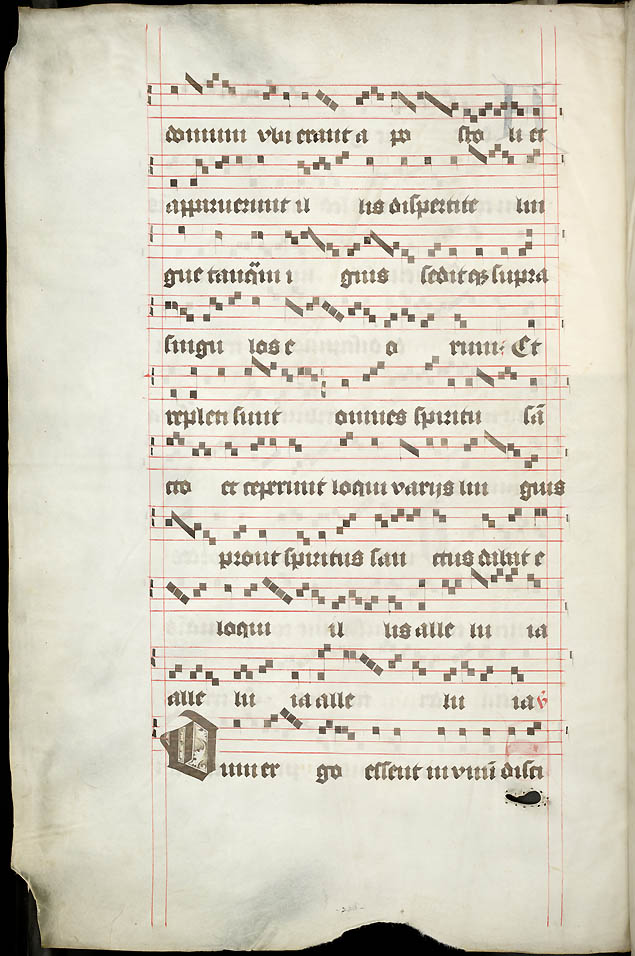 domum vbi erant a po sto li et
appiruerunt il lis dispertite lin
gue tanq̃m i gnis sedit qꝫ supra
singu los e o rum: Et
repleti sunt omnes spiritu sã
cto et ceperunt loqui varijs lin guis
prout spiritus san ctus dabat e
loqui il lis alle lu ia
alle lu ia alle lu ia v̓
Dum er go essent in vnũ disci